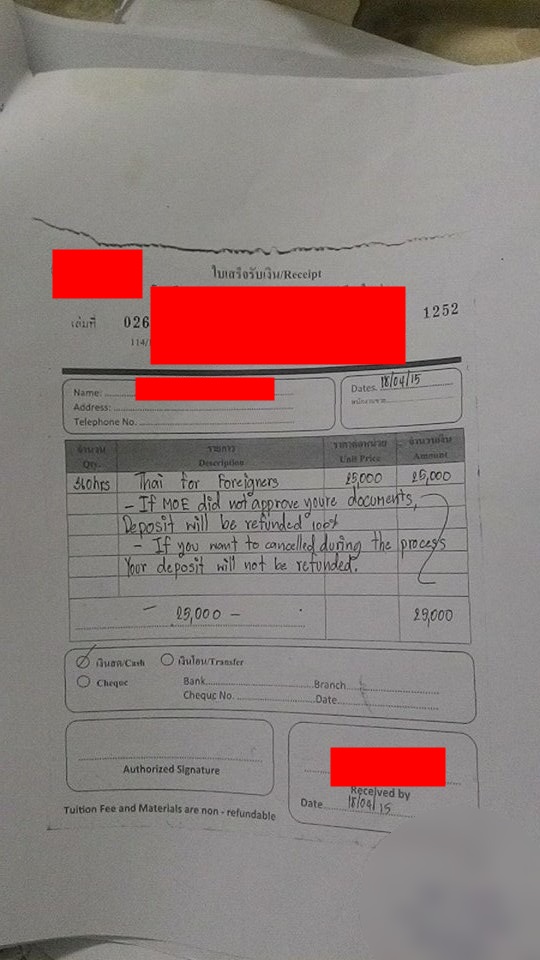 ใบเสร็จรับเงิน/Receipt
เล่มที่ 026 1252
114/
Name:
Address:
Telephone No.
Dates. 18/04/15
จำนวน รายการ ราคาต่อหน่วย จำนวนเงิน
Qty. Description Unit Price Amount
360hrs Thai for Foreigners 25,000 25,000
- If MOE did not approve youre documents,
Deposit will be refunded 100%
- If you want to cancelled during the process
Your deposit will not be refunded.
- 25,000 - 25,000
เงินสด/Cash เงินโอน/Transfer
Cheque Bank Branch
Cheque No. Date
Authorized Signature
Received by
Date 18/04/15
Tuition Fee and Materials are non - refundable